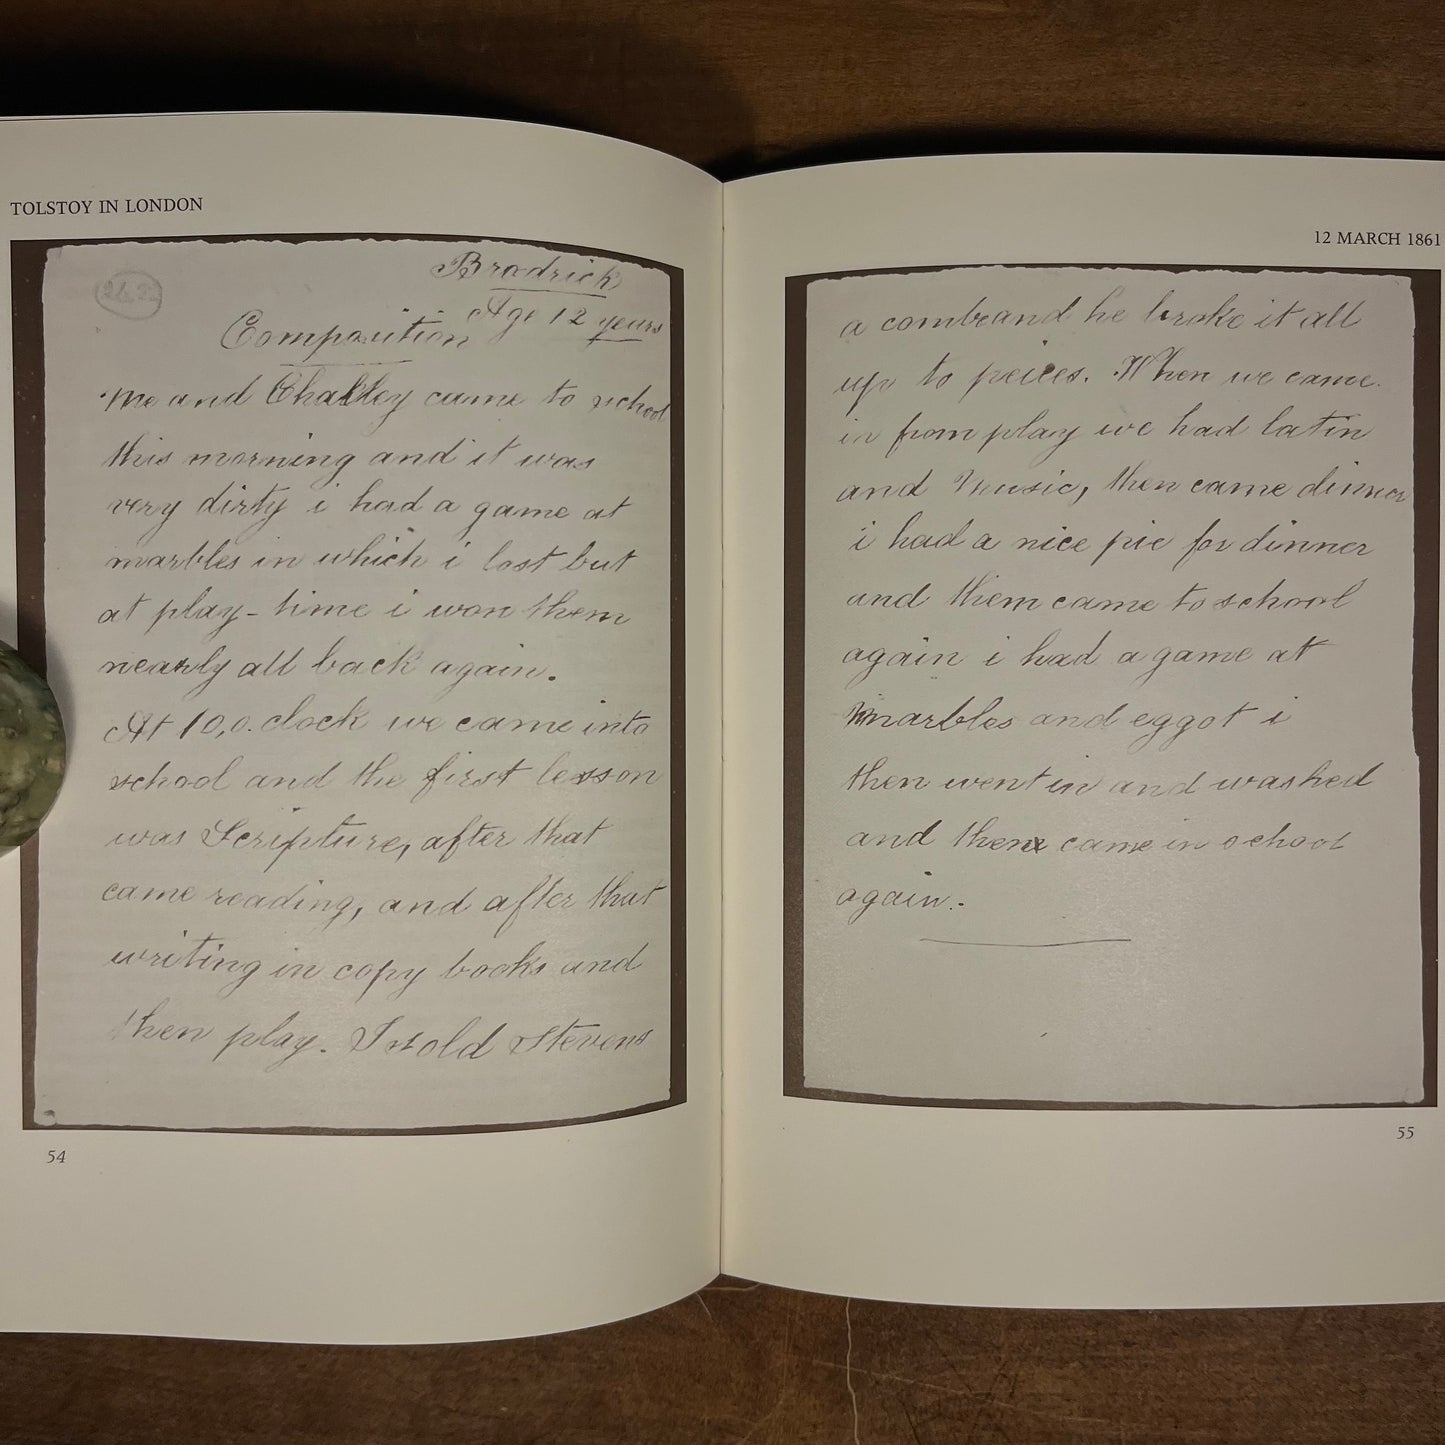 TOLSTOY IN LONDON
Brodrick
Age 12 years
Composition
Me and Chalkley came to school
this morning and it was
very dirty i had a game at
marbles in which i lost but
at play-time i won them
nearly all back again.
At 10,o.clock we came into
school and the first lesson
was Scripture, after that
came reading, and after that
writing in copy books and
then play. I sold Stevens
54
12 MARCH 1861
a combeand he broke it all
up to peices. When we came
in from play we had latin
and Music, then came dinner
i had a nice pie for dinner
and them came to school
again i had a game at
marbles and eggot i
then went in and washed
and then came in school
again.
55